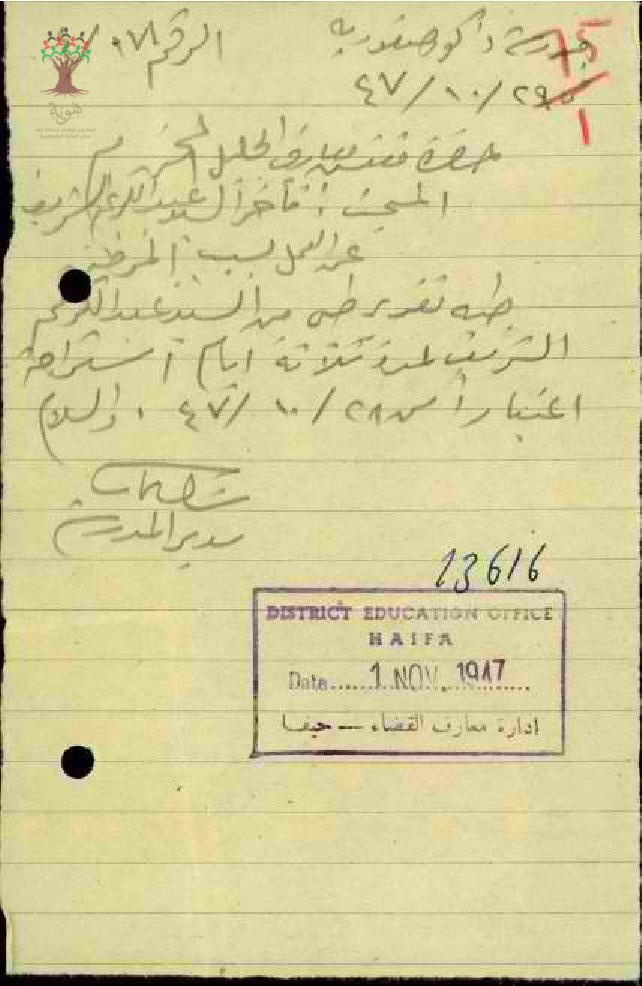 مدرسة صفورية
الرقم ١٧١/
٤٧/١٠/٢٩
15/1
هوية
حضرة مفتش معارف الجليل المحترم
عبد الكريم الشريف
عن العمل بسبب المرض
طيه تقرير طبي من السيد عبد الكريم
الشريف لمدة ثلاثة ايام استراحة
اعتباراً من ٤٧/١٠/٢٨ والسلام
مدير المدرسة
13616
DISTRICT EDUCATION OFFICE
HAIFA
Date 1 NOV. 1947
ادارة معارف القضاء — حيفا